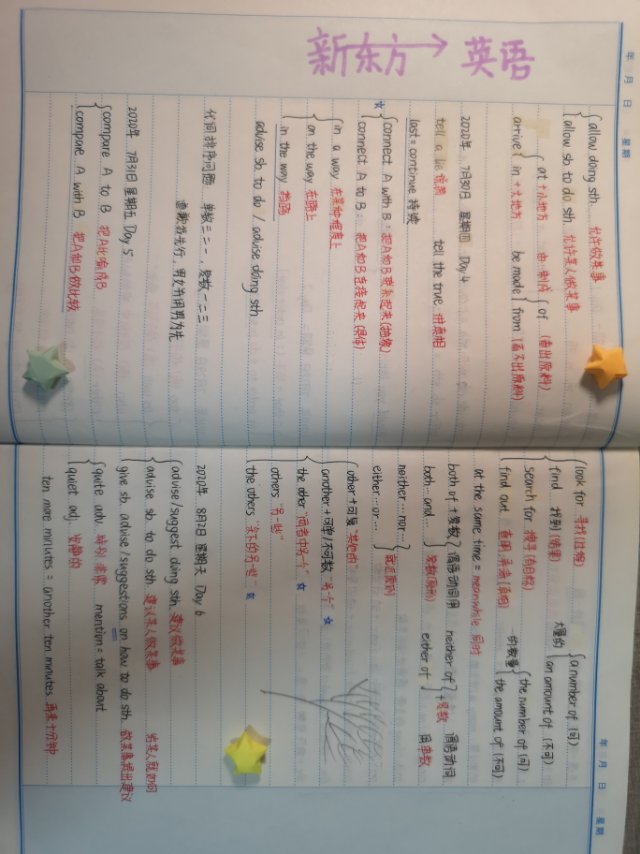 新东方 英语
年 月 日 星期
allow doing sth. 允许做某事
allow sb to do sth. 允许某人做某事
arrive at +小地方
in +大地方
be made of (看出原料)
from (看不出原料)
2020年 7月30日 星期四 Day 4
tell a lie 说谎 tell the true 讲真相
last = continue 持续
connect A with B: 把A和B联系起来(抽象)
connect A to B: 把A和B连接起来
in a way 在某种程度上
on the way 在路上
in the way 挡路
advise sb. to do / advise doing sth
代词排序问题 单数二三一，复数一二三
2020年 7月31日 星期五 Day 5
compare A to B 把A比喻成B
compare A with B 把A和B做比较
年 月 日 星期
look for 寻找(过程)
find 找到(结果)
search for 搜寻(有目的)
find out 查明,弄清(真相)
大量的 a number of (可)
an amount of (不可)
的数量 the number of (可)
the amount of (不可)
at the same time = meanwhile 同时
both of +复数 谓语动词用
both…and… 复数(原形)
neither of +复数 谓语动词
either of 用单数
neither…nor…
either…or… 就近原则
other+可复 "其他的"
another+可单/不可数 "另一个"
the other "两者中另一个"
others "另一些"
the others "余下的另一些"
2020年 8月2日 星期天 Day 6
advise/suggest doing sth. 建议做某事
advise sb. to do sth. 建议某人做某事
give sb. advise/suggestions on how to do sth. 做某事提出建议
quite adv. 特别,非常 mention = talk about
quiet adj. 安静的
ten more minutes = another ten minutes 再来十分钟